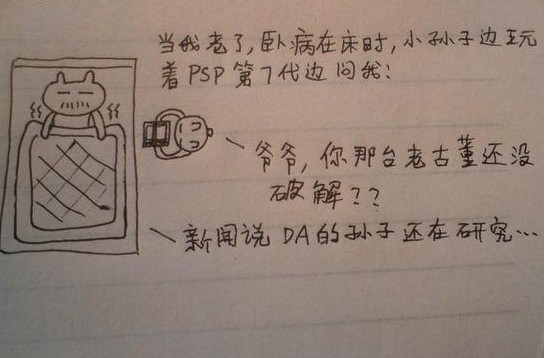 当我老了,卧病在床时,小孙子边玩
着PSP第7代边问我:
爷爷,你那台老古董还没
破解??
新闻说DA的孙子还在研究…